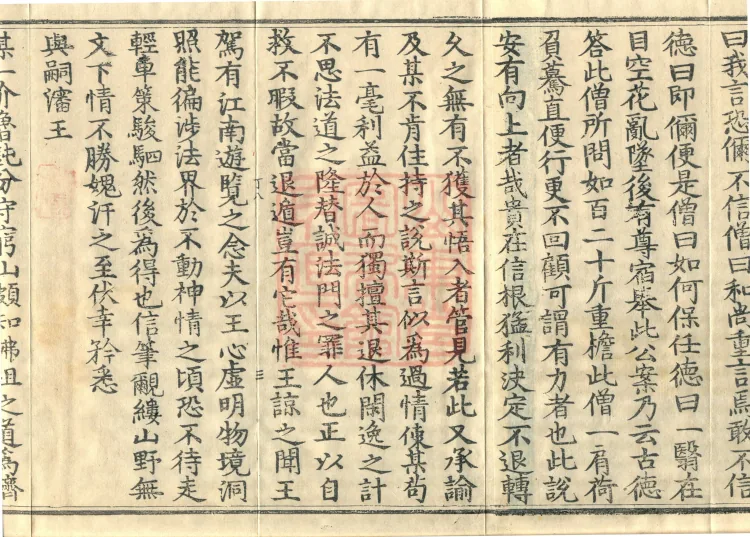 曰我言恐儞不信僧曰和尚重言焉敢不信
德曰即儞便是僧曰如何保任德曰一翳在
目空花亂墜後有尊宿舉此公案乃云古德
答此僧所問如百二十斤重擔此僧一肩荷
負驀直便行更不回顧可謂有力者也此說
安有向上者哉貴在信根猛利決定不退轉
久之無有不獲其悟入者管見若此又承諭
及某不肯住持之說斯言似為過情使某苟
有一毫利益於人而獨擅其退休閑逸之計
不思法道之隆替誠法門之罪人也正以自
救不暇故當退遁豈有它哉惟王諒之聞王
駕有江南遊覽之念夫以王心虛明物境洞
照能徧涉法界於不動神情之頃恐不待走
輕車策駿駟然後為得也信筆覼縷山野無
文下情不勝媿汗之至伏幸矜悉
與嗣瀋王
某一介魯鈍分守窮山頗知佛祖之道為濟